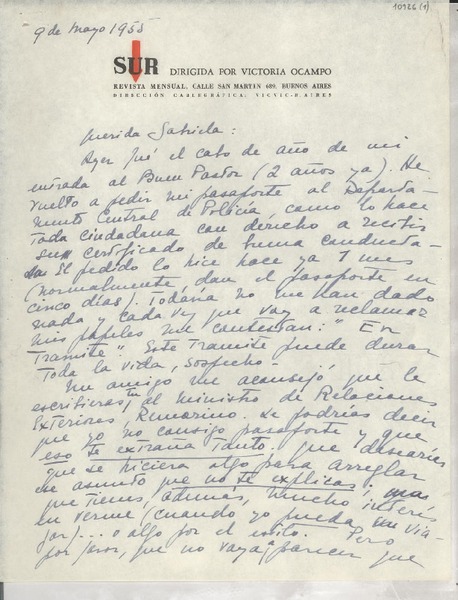 10126 (1)
9 de Mayo 1955
SUR
DIRIGIDA POR VICTORIA OCAMPO
REVISTA MENSUAL, CALLE SAN MARTIN 689, BUENOS AIRES
DIRECCIÓN CABLEGRÁFICA: VICVIC-B. AIRES
Querida Gabriela:
Ayer fué el cabo de año de mi
entrada al Buen Pastor (2 años ya). He
vuelto a pedir mi pasaporte al Departa-
mento Central de Policía, como lo hace
toda ciudadana con derecho a recibir
su certificado de buena conducta.
El pedido lo hice hace ya 1 mes
(normalmente, dan el pasaporte en
cinco días). Todavía no me han dado
nada y cada vez que voy a reclamar
mis papeles me contestan: "En
Tramite". Este Tramite puede durar
toda la vida, sospecho.
Un amigo me aconsejó que le
escribieras tú al ministro de Relaciones
Exteriores, Remorino. Le podrías decir
que yo no consigo pasaporte y que
eso te extraña tanto. Que desearías
que se hiciera algo para arreglar
ese asunto que no te explicas,
que tienes, además, mucho interés
en verme (cuando yo pueda via-
jar)... o algo por el estilo. Pero
por favor, que no vaya a parecer que